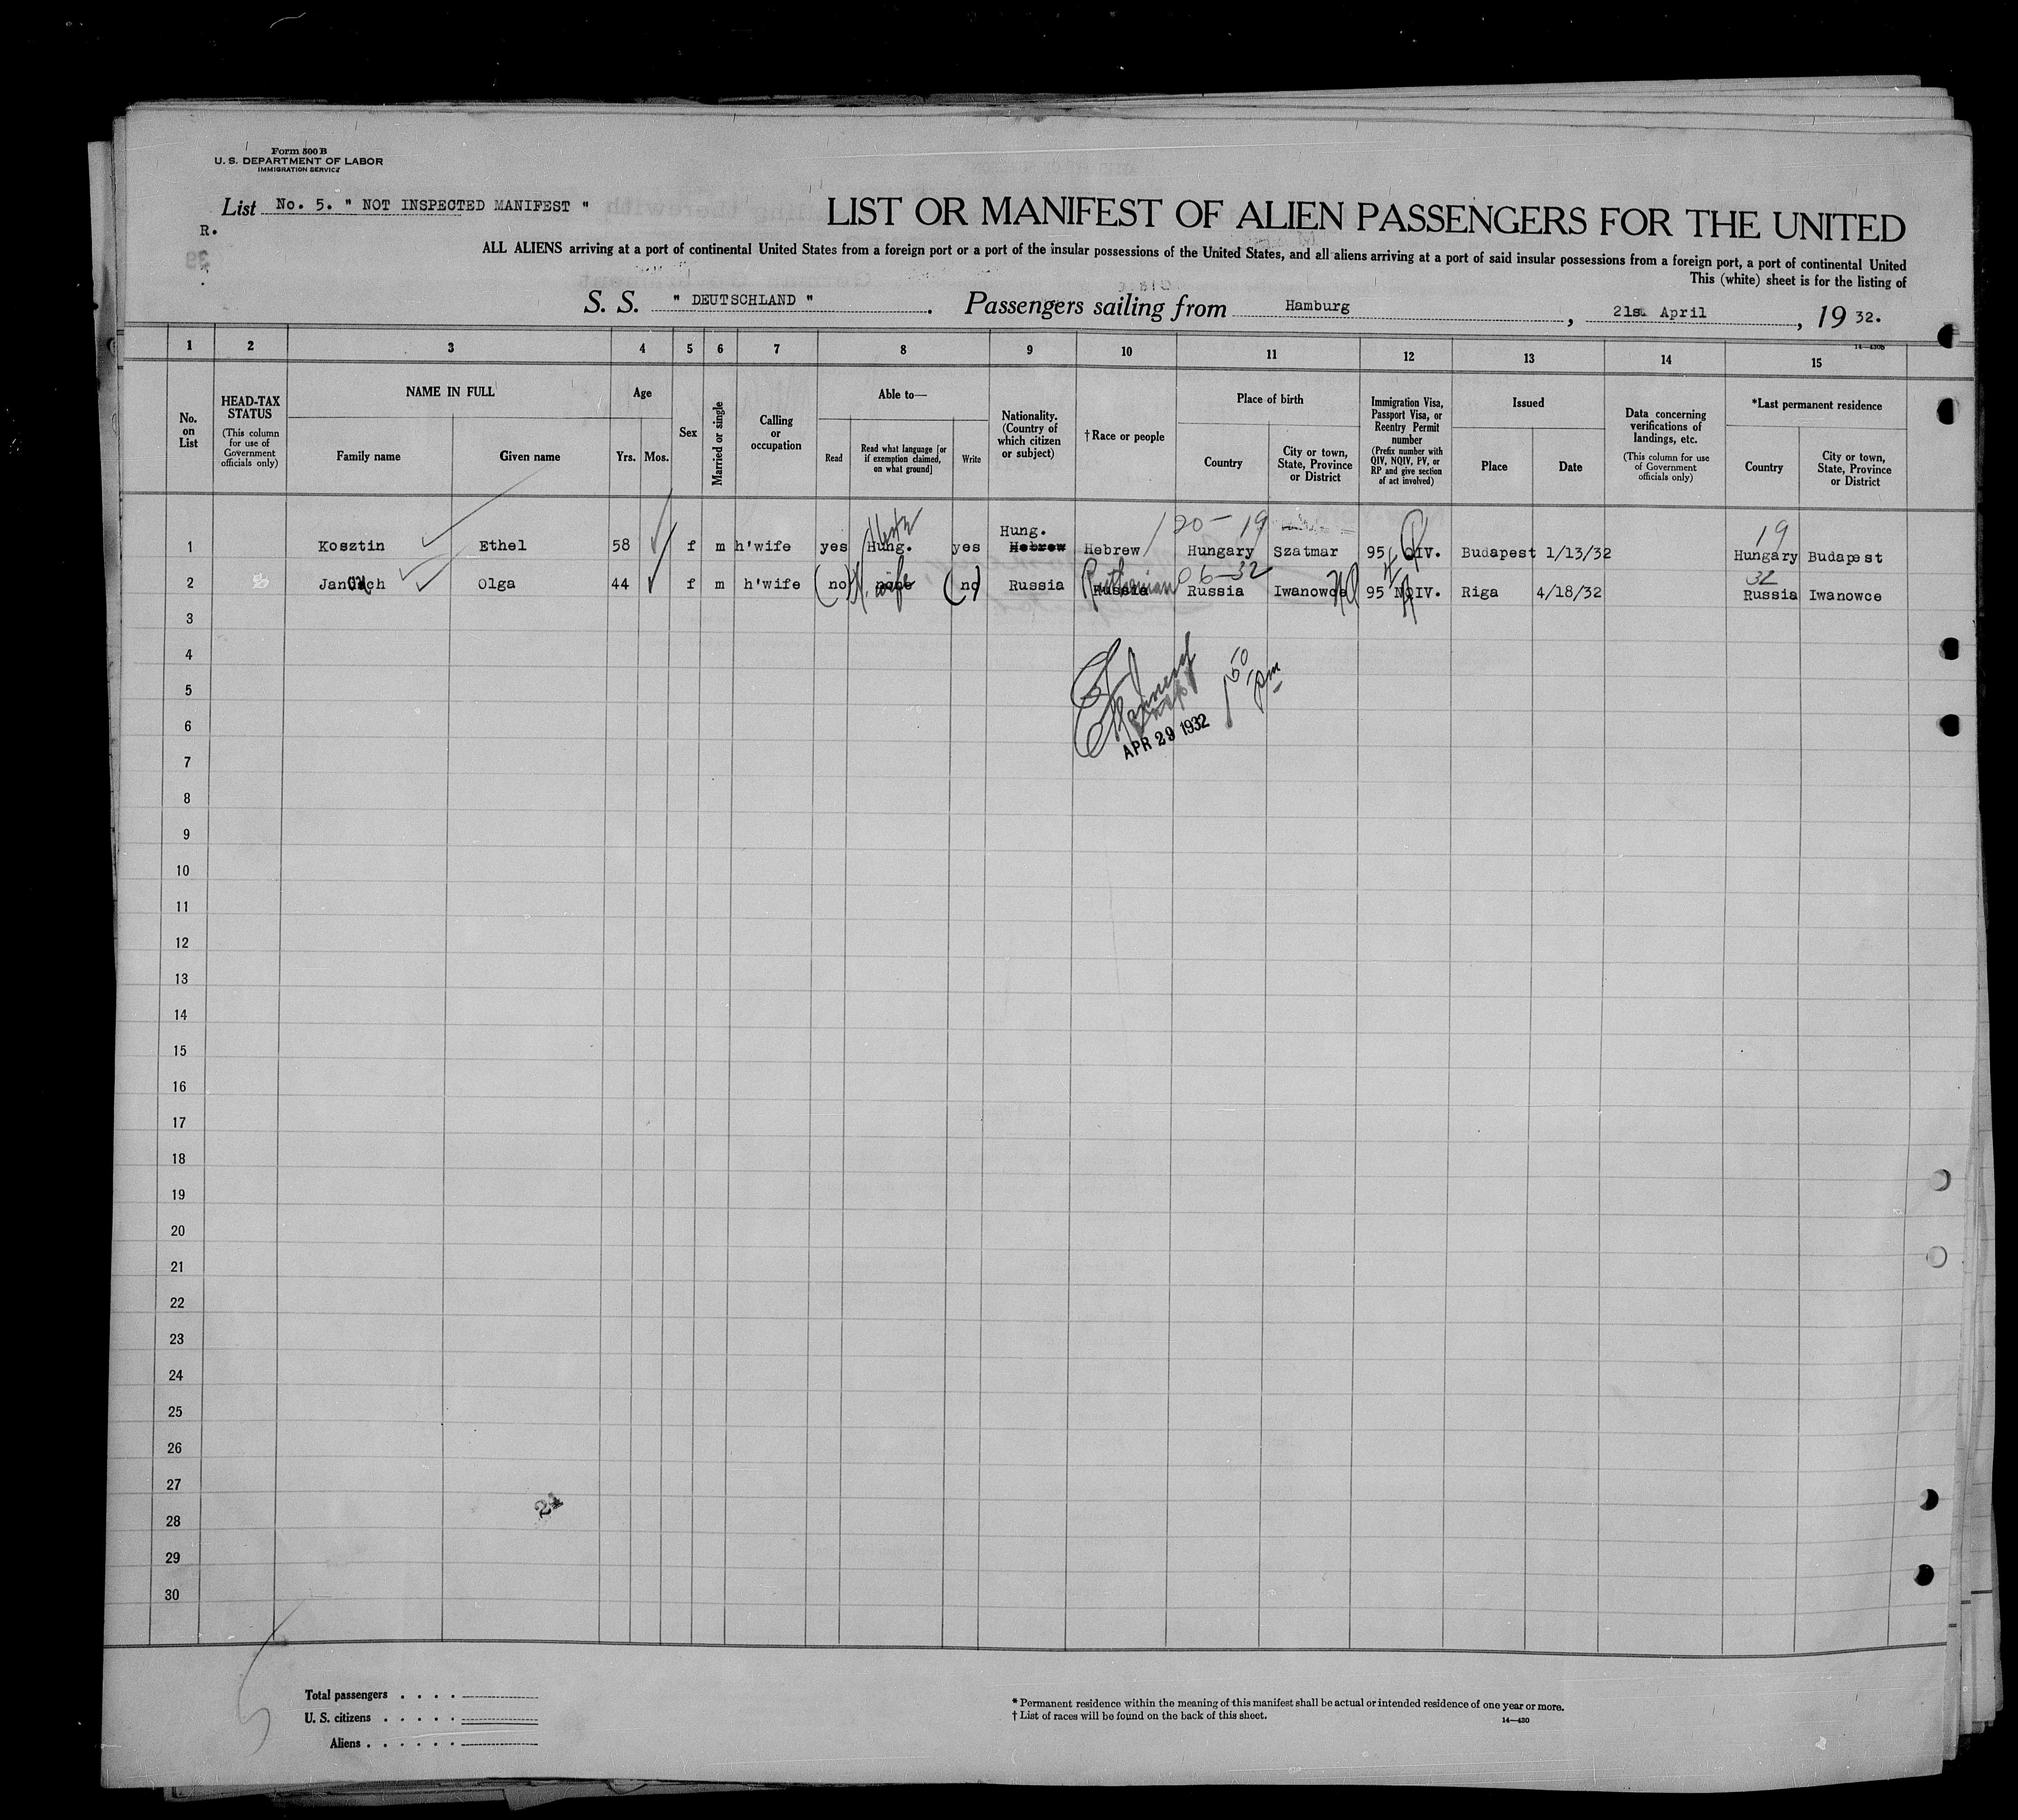 Form 500 B
U. S. DEPARTMENT OF LABOR
IMMIGRATION SERVICE
List No. 5. " NOT INSPECTED MANIFEST "
R.
LIST OR MANIFEST OF ALIEN PASSENGERS FOR THE UNITED
ALL ALIENS arriving at a port of continental United States from a foreign port or a port of the insular possessions of the United States, and all aliens arriving at a port of said insular possessions from a foreign port, a port of continental United
This (white) sheet is for the listing of
S. S. " DEUTSCHLAND ". Passengers sailing from Hamburg, 21st April, 19 32.
14—430b
1 2 3 4 5 6 7 8 9 10 11 12 13 14 15
No. on List
HEAD-TAX STATUS (This column for use of Government officials only)
NAME IN FULL
Family name Given name
Age
Yrs. Mos.
Sex
Married or single
Calling or occupation
Able to—
Read Read what language [or if exemption claimed, on what ground] Write
Nationality. (Country of which citizen or subject)
† Race or people
Place of birth
Country City or town, State, Province or District
Immigration Visa, Passport Visa, or Reentry Permit number (Prefix number with QIV, NQIV, PV, or RP and give section of act involved)
Issued
Place Date
Data concerning verifications of landings, etc. (This column for use of Government officials only)
*Last permanent residence
Country City or town, State, Province or District
120-19 19
1 Kosztin Ethel 58 f m h'wife yes Hung. yes Hung. Hebrew Hebrew Hungary Szatmar 95 QIV. Budapest 1/13/32 Hungary Budapest
06-32 32
2 Olga 44 f m h'wife no wife no Russia Ruthenian Russia Iwanowce 95 NQIV. Riga 4/18/32 Russia Iwanowce
3
4
5
6
APR 29 1932
1 50 pm
7
8
9
10
11
12
13
14
15
16
17
18
19
20
21
22
23
24
25
26
27
24
28
29
30
Total passengers . . . .
U. S. citizens . . . . .
Aliens . . . . . .
* Permanent residence within the meaning of this manifest shall be actual or intended residence of one year or more.
† List of races will be found on the back of this sheet.
14—430